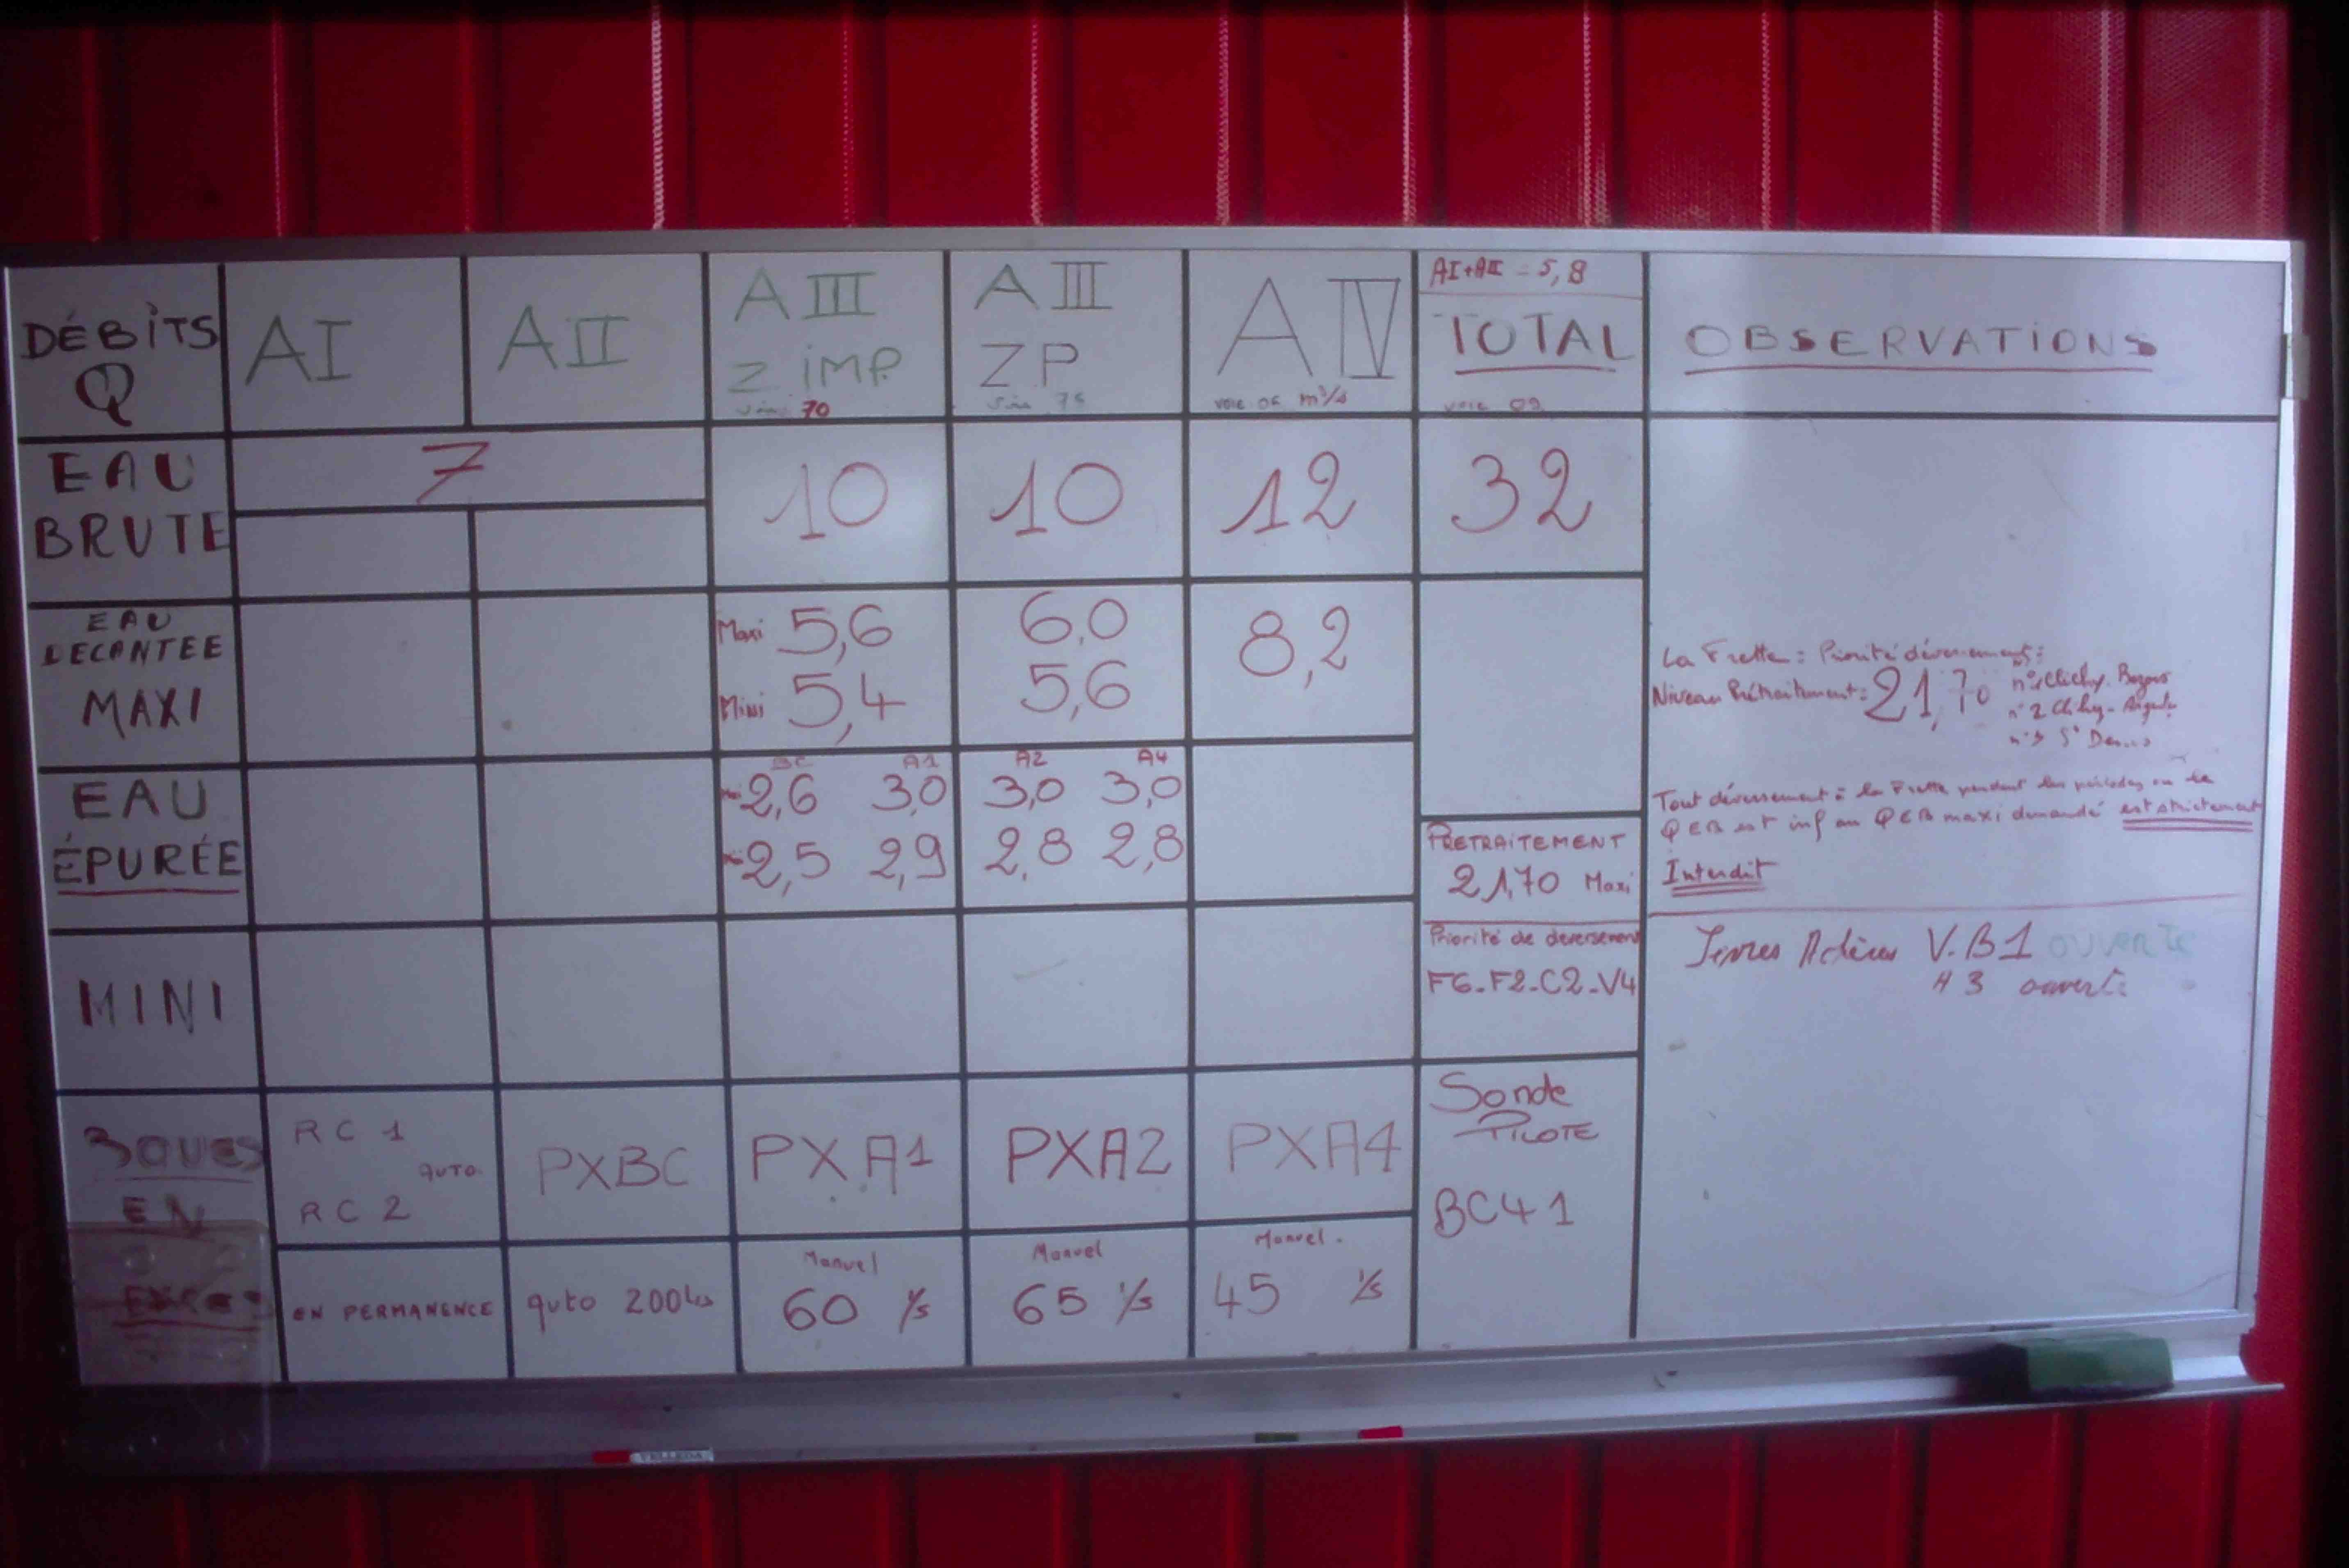 DÉBITS
Q
AI
AII
AIII
Z IMP.
70
AIII
ZP
AIV
voie 06 m³/s
AI+AII = 5,8
TOTAL
voie 09
OBSERVATIONS
EAU
BRUTE
7
10
10
12
32
EAU
DECANTEE
MAXI
Maxi 5,6
Mini 5,4
6,0
5,6
8,2
La Frette : Priorité déversement :
Niveau Prétraitement : 21,70
n°1 Clichy.
n°2 Clichy -
n°3 St Denis
EAU
ÉPURÉE
BC A1
2,6 3,0
2,5 2,9
A2 A4
3,0 3,0
2,8 2,8
PRETRAITEMENT
21,70 Maxi
Tout déversement à la Frette pendant les périodes où le
QEB est inf au QEB maxi demandé est strictement
Interdit
MINI
Priorité de deversement
F6-F2-C2-V4
V.B1 OUVERTE
A3 ouvert
BOUES
EN
EXCES
RC 1
auto
RC 2
PXBC
PXA1
PXA2
PXA4
Sonde
PILOTE
BC41
EN PERMANENCE
auto 200 l/s
Manuel
60 l/s
Manuel
65 l/s
Manuel.
45 l/s
VELLEDA